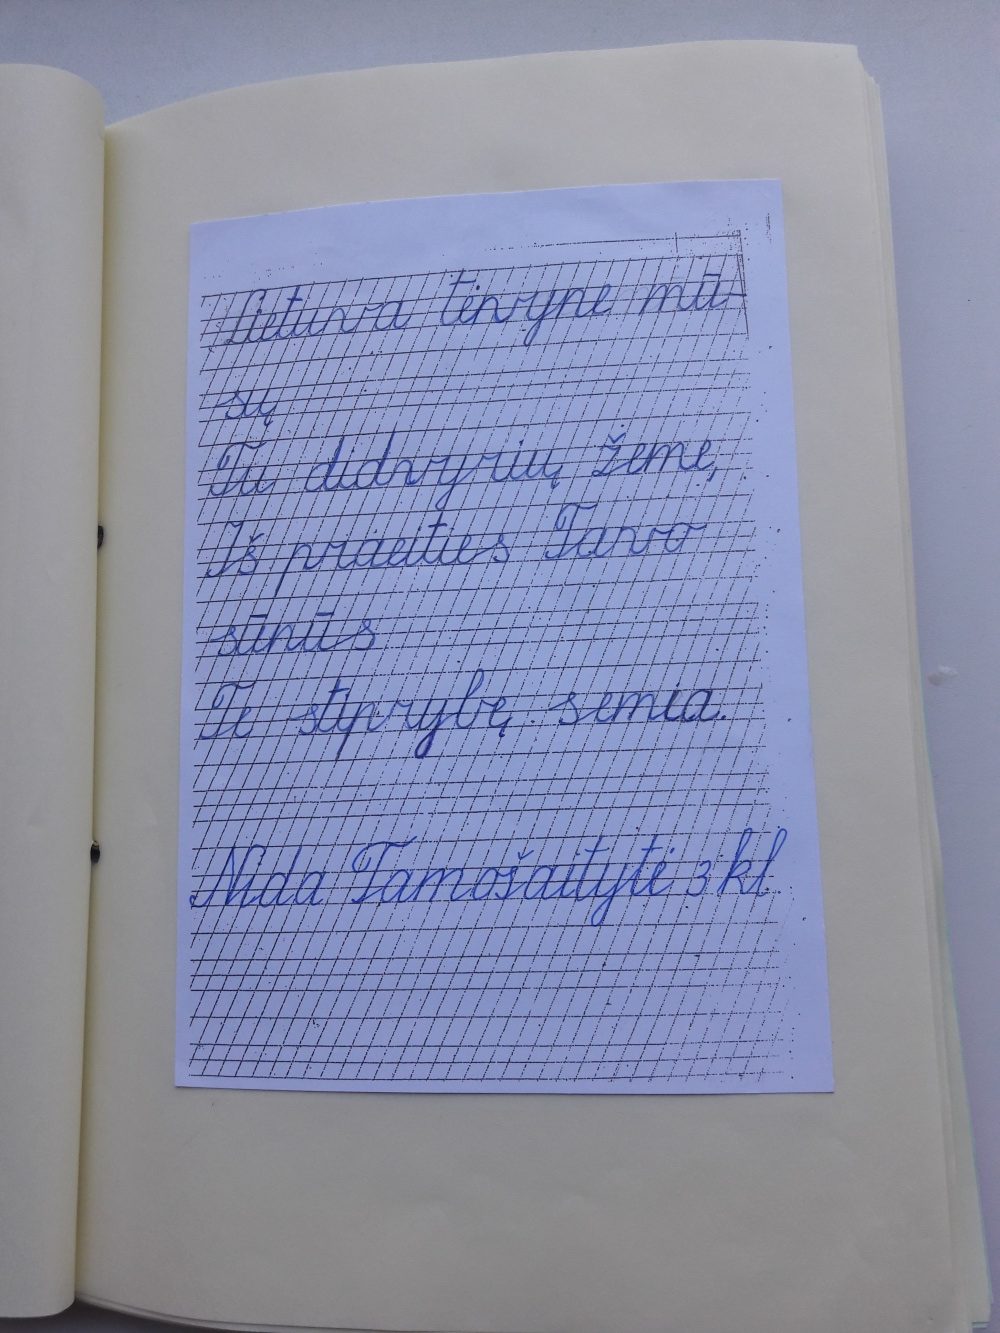 Lietuva tėvyne mū-
sų
Tu didvyrių žeme,
Iš praeities Tavo
sūnūs
Te stiprybę semia.
Nida Tamošaitytė 3 kl.